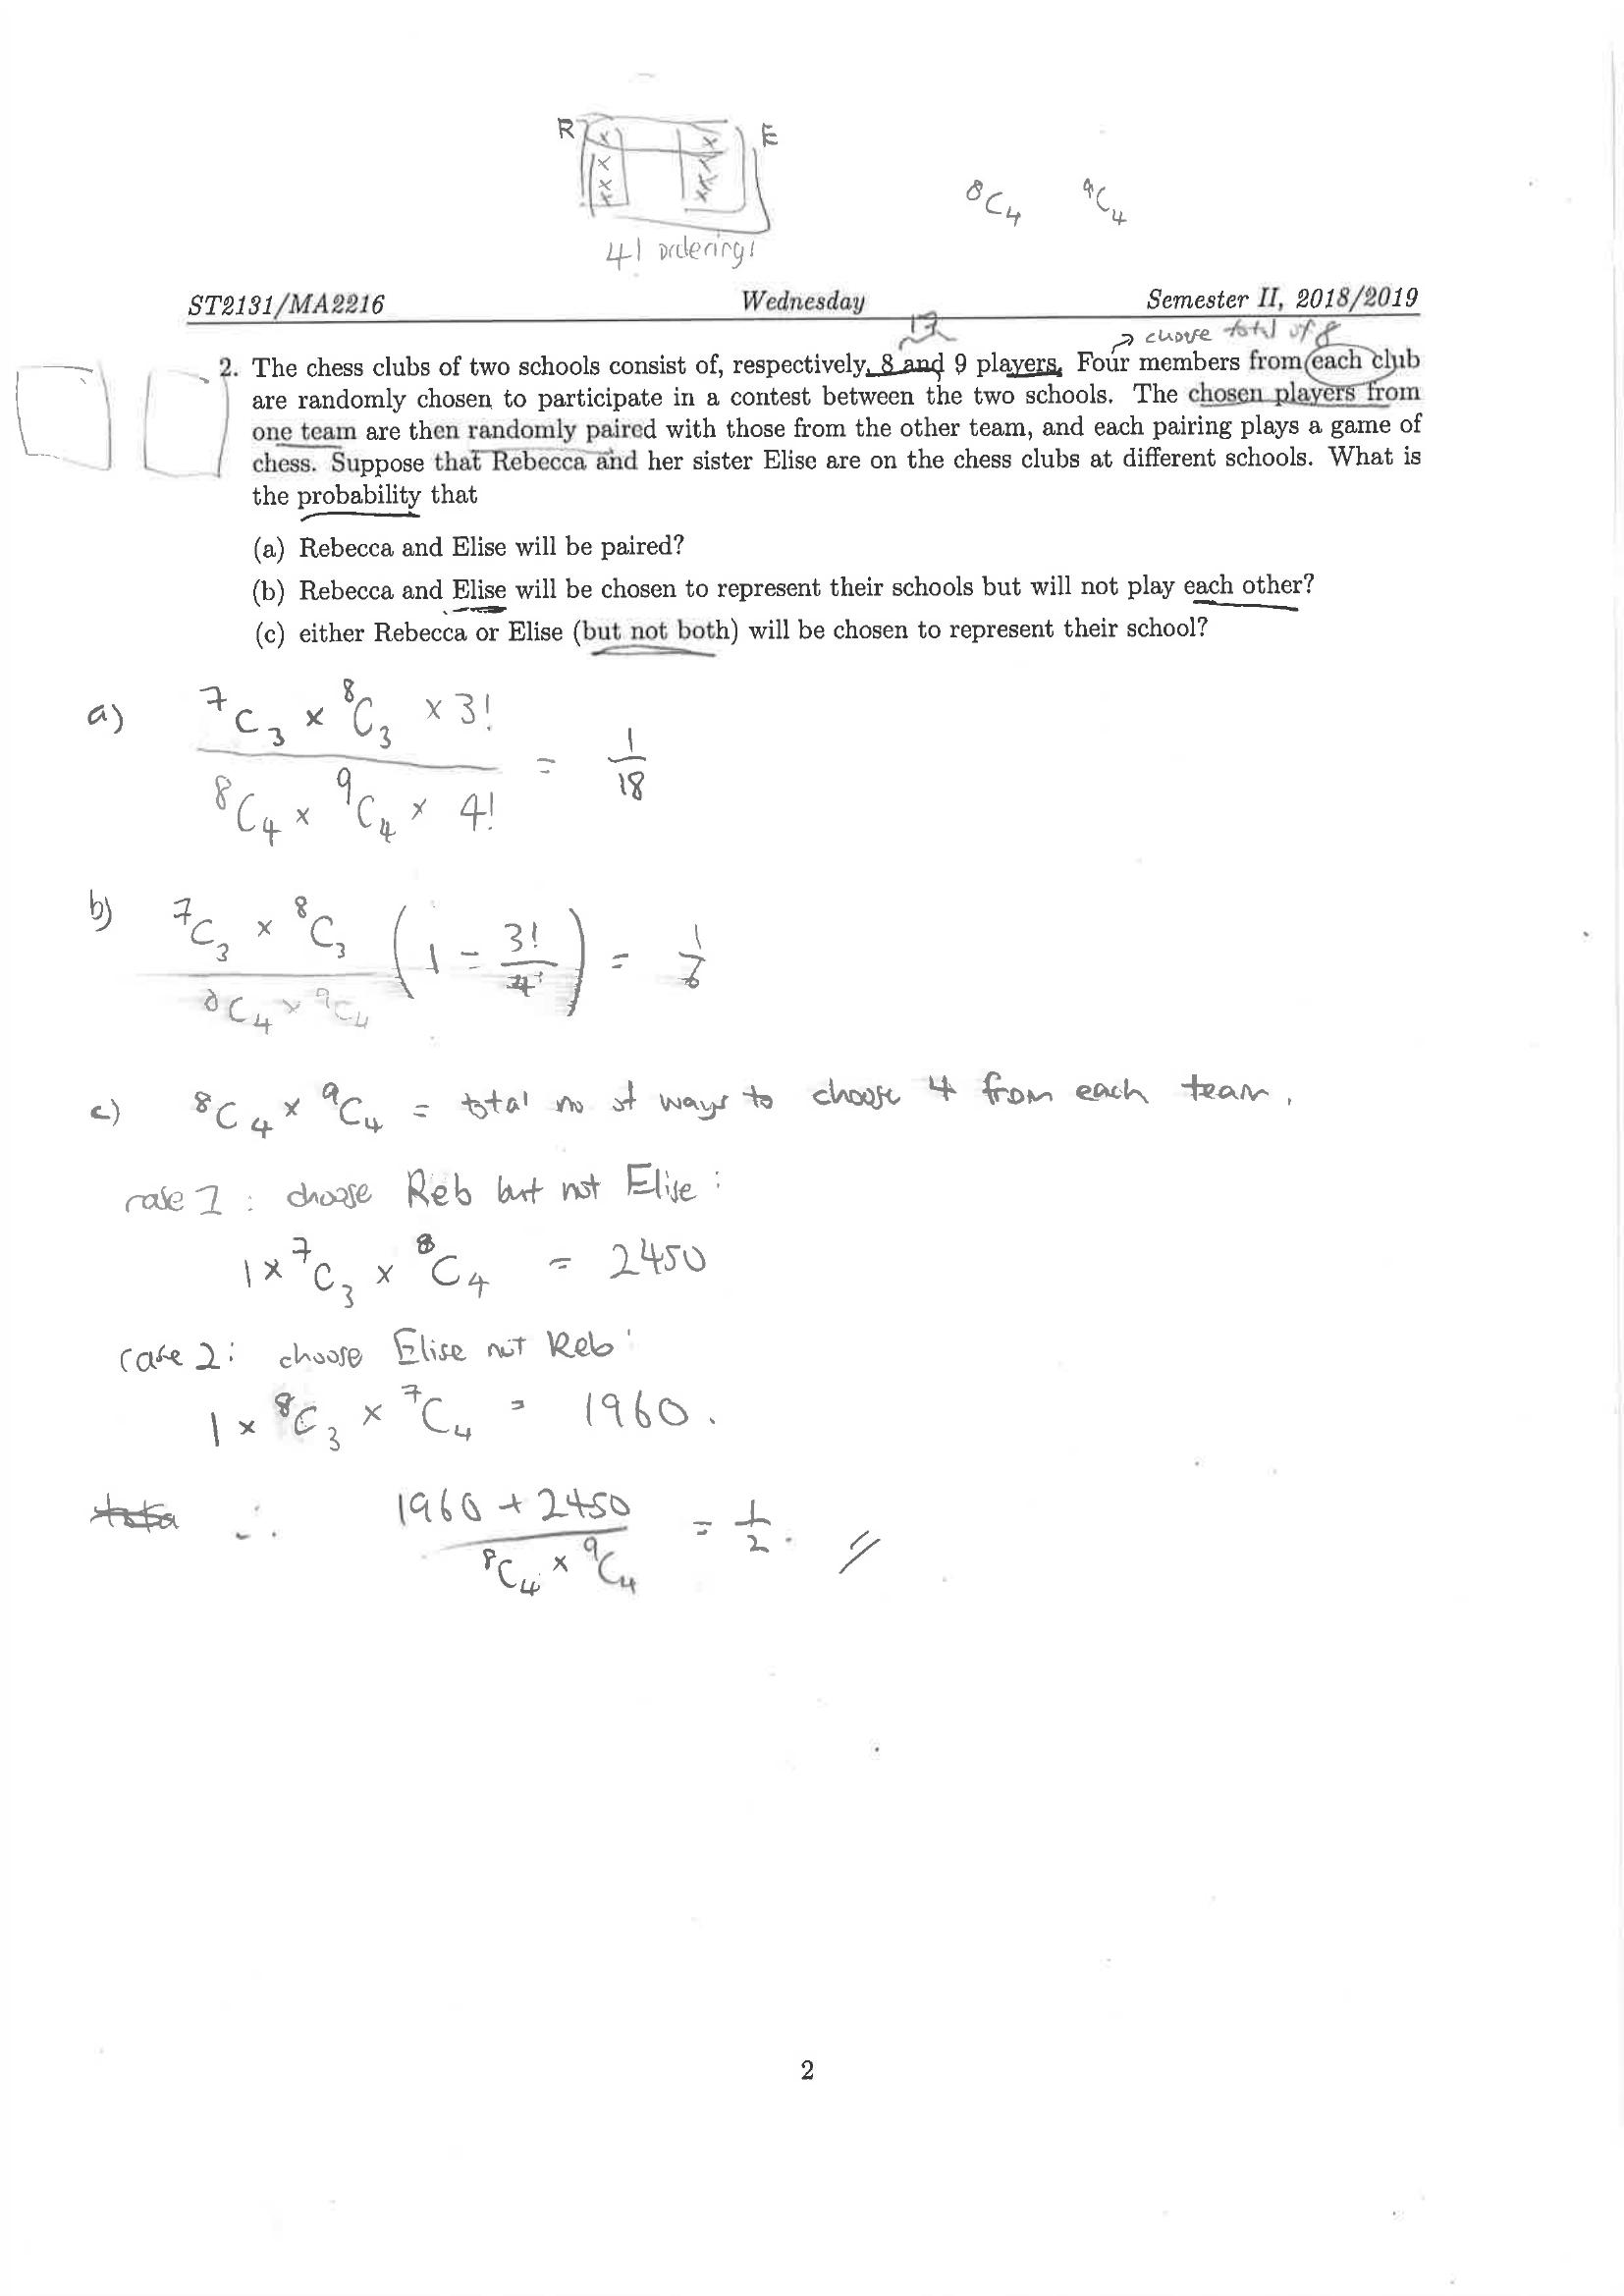 R E
4! ordering!
⁸C₄ ⁹C₄
ST2131/MA2216 Wednesday Semester II, 2018/2019
17 → choose total of 8
2. The chess clubs of two schools consist of, respectively, 8 and 9 players. Four members from each club
are randomly chosen to participate in a contest between the two schools. The chosen players from
one team are then randomly paired with those from the other team, and each pairing plays a game of
chess. Suppose that Rebecca and her sister Elise are on the chess clubs at different schools. What is
the probability that
(a) Rebecca and Elise will be paired?
(b) Rebecca and Elise will be chosen to represent their schools but will not play each other?
(c) either Rebecca or Elise (but not both) will be chosen to represent their school?
a) ⁷C₃ × ⁸C₃ × 3!
= 1/18
⁸C₄ × ⁹C₄ × 4!
b) ⁷C₃ × ⁸C₃ (1 - 3!/4!) = 1/6
⁸C₄ × ⁹C₄
c) ⁸C₄ × ⁹C₄ = total no of ways to choose 4 from each team.
case 1 : choose Reb but not Elise :
1 × ⁷C₃ × ⁸C₄ = 2450
case 2 : choose Elise not Reb :
1 × ⁸C₃ × ⁷C₄ = 1960.
∴ 1960 + 2450
= 1/2.
⁸C₄ × ⁹C₄
2